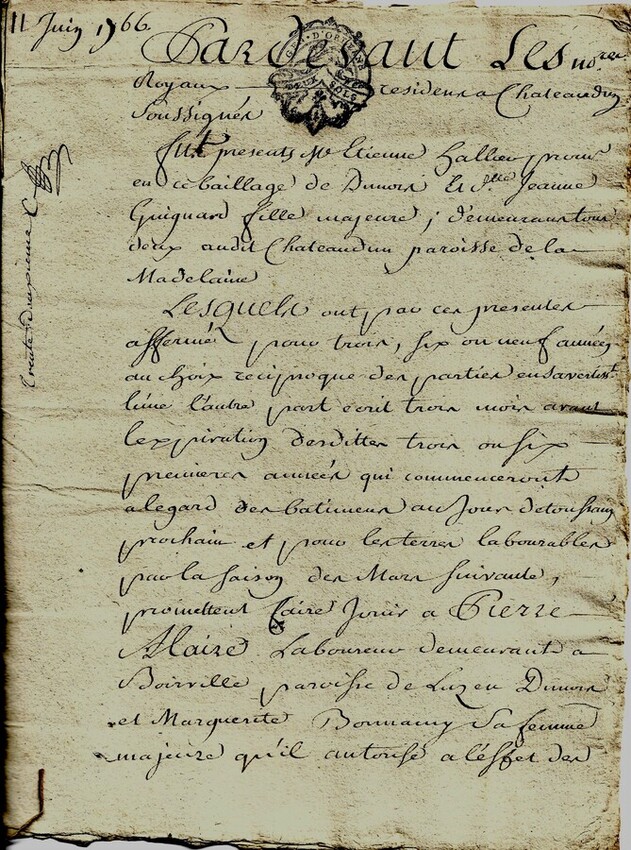 11 Juin 1766.
Pardevant Les no.res
Royaux residens a Chateaudun
Soussignés
fur.t presents M.e Etienne Hallier, procur.
en ce baillage de Dunois Et d.lle Jeanne
Guignard fille majeure ; demeurans tous
deux audit Chateaudun paroisse de la
Madelaine
Lesquels ont par ces presentes
affermé pour trois, six ou neuf années
au choix reciproque des parties en s'avertiss.t
l'une l'autre part ecrit trois mois avant
l'expiration desdittes trois ou six
premieres années qui commenceront
a legard des batimens au Jour de toussains
prochain et pour les terres labourables
par la saison des Mars suivante,
promettent faire Jouir a Pierre
Alaire Laboureur demeurant a
Boirville paroisse de Luz en Dunois
et Marguerite Bonnamy sa femme
majeure qu'il autorise a l'effet des